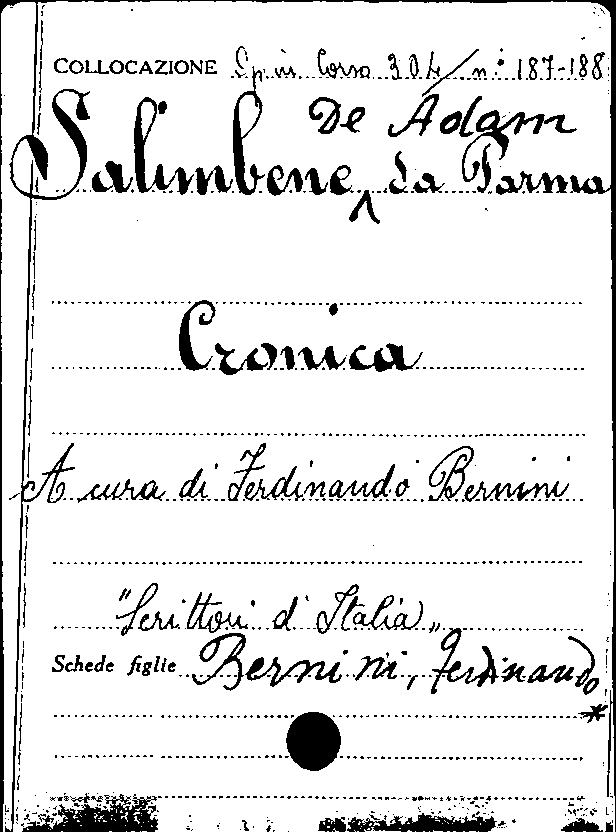 COLLOCAZIONE Op. in Corso 304/n.i 187-188
De Adam
Salimbene ^ da Parma
Cronica
A cura di Ferdinando Bernini
"Scrittori d'Italia"
Schede figlie Bernini, Ferdinando
*